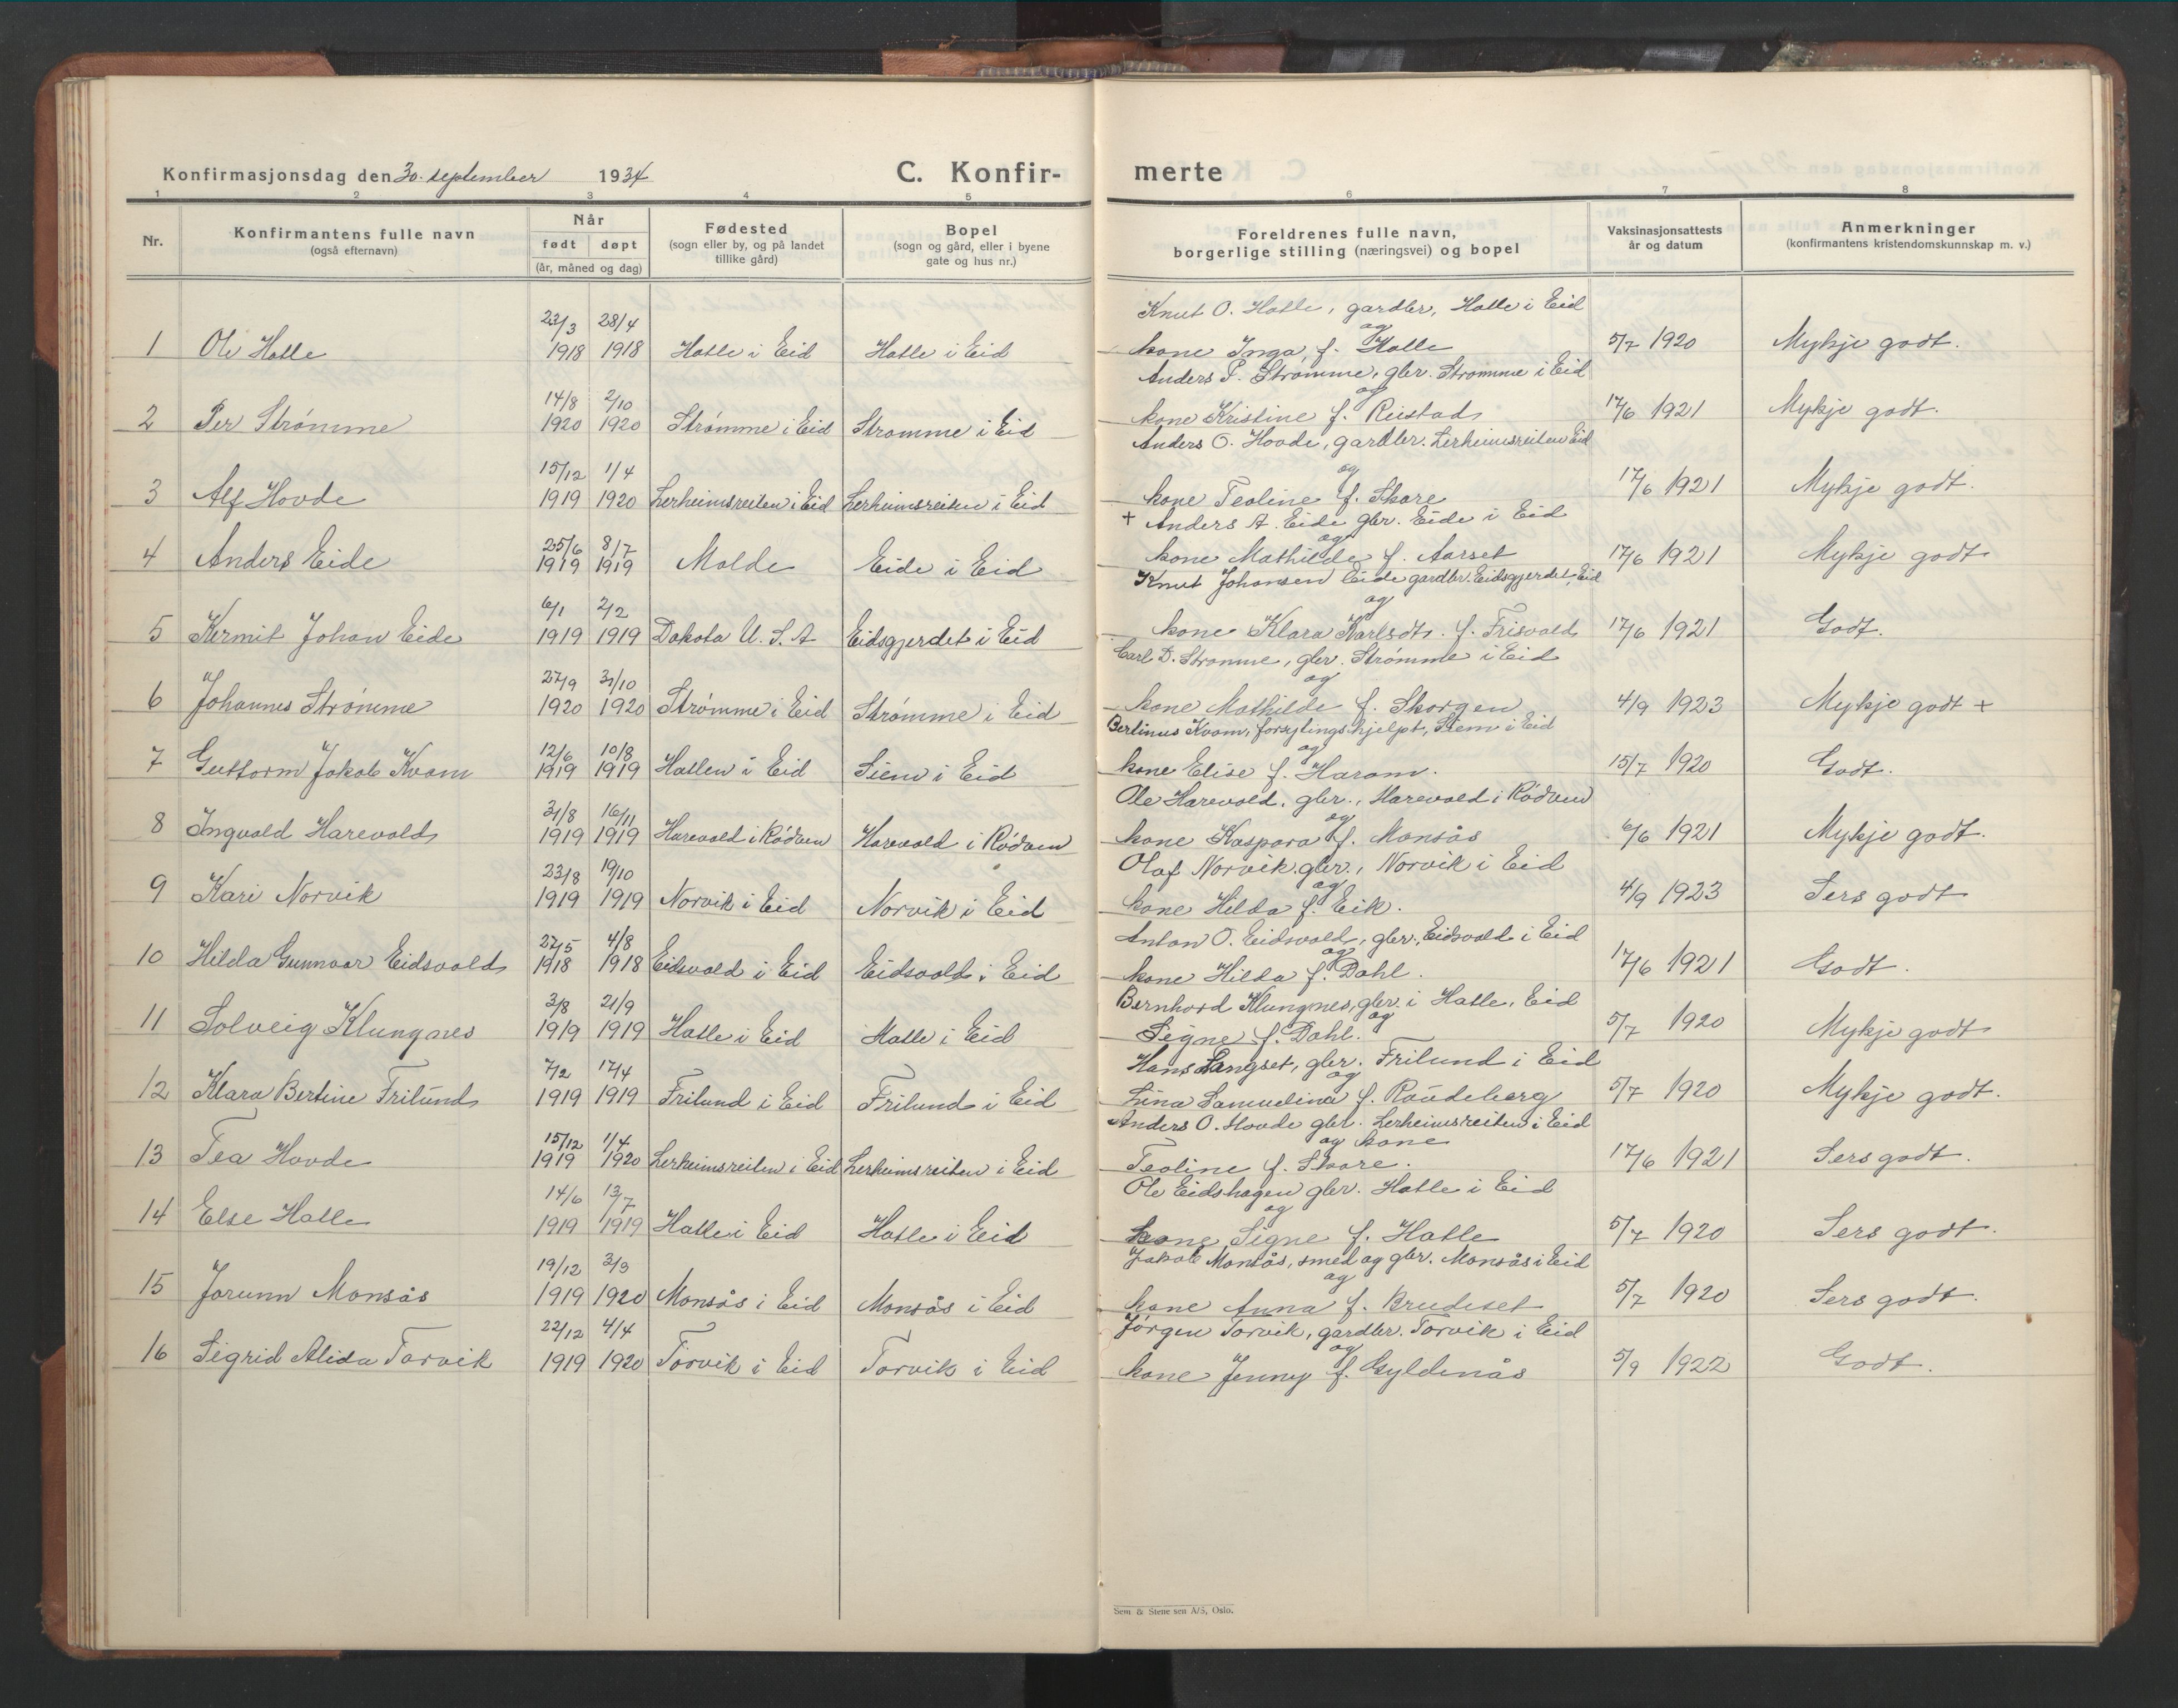 Konfirmasjonsdag den 30. september 1934
C. Konfir-
merte
1 2 3 4 5 6 7 8
Nr.
Konfirmantens fulle navn
(også efternavn)
Når
født døpt
(år, måned og dag)
Fødested
(sogn eller by, og på landet
tillike gård)
Bopel
(sogn og gård, eller i byene
gate og hus nr.)
Foreldrenes fulle navn,
borgerlige stilling (næringsvei) og bopel
Vaksinasjonsattests
år og datum
Anmerkninger
(konfirmantens kristendomskunnskap m. v.)
23/3 28/4 Knut O. Hatle, gardbr, Hatle i Eid
og
1 Ole Hatle 1918 1918 Hatle i Eid Hatle i Eid kone Inga, f. Hatle 5/7 1920 Mykje godt.
14/8 2/10 Anders P. Strømme, gbr. Strømme i Eid
og
2 Per Strømme 1920 1920 Strømme i Eid Strømme i Eid kone Kristine f. Reistad 17/6 1921 Mykje godt.
15/12 1/4 Anders O. Hovde, gardbr. Lerheimsreiten Eid
og
3 Alf Hovde 1919 1920 Lerheimsreiten i Eid Lerheimsreiten i Eid kone Teoline f. Skare 17/6 1921 Mykje godt.
25/6 8/7 + Anders A. Eide gbr. Eide i Eid
og
4 Anders Eide 1919 1919 Molde Eide i Eid kone Mathilde f. Aarset 17/6 1921 Mykje godt
6/1 2/2 Knut Johansen Eide gardbr. Eidsgjerdet, Eid
og
5 Kermit Johan Eide 1919 1919 Dakota U. S. A Eidsgjerdet i Eid kone Klara Karlsdtr. f. Frisvold 17/6 1921 Godt.
27/9 31/10 Carl D. Strømme, gbr. Strømme i Eid
og
6 Johannes Strømme 1920 1920 Strømme i Eid Strømme i Eid kone Mathilde f. Skorgen 4/9 1923 Mykje godt +
12/6 10/8 Bertinus Kvam, forsytingshjelpt, Siem i Eid
og
7 Guttorm Jakob Kvam 1919 1919 Hatlen i Eid Siem i Eid kone Elise f. Haram. 15/7 1920 Godt.
31/8 16/11 Ole Harevold, gbr., Harevold i Rødven
og
8 Ingvald Harevold 1919 1919 Harevold i Rødven Harevold i Rødven kone Kaspara f. Monsås 6/6 1921 Mykje godt.
23/8 19/10 Olaf Norvik gbr., Norvik i Eid
og
9 Kari Norvik 1919 1919 Norvik i Eid Norvik i Eid kone Hilda f. Eik. 4/9 1923 Sers godt
27/5 4/8 Anton O. Eidsvold, gbr., Eidsvold i Eid
og
10 Hilda Gunnvor Eidsvold 1918 1918 Eidsvold i Eid Eidsvold i Eid kone Hilda f. Dahl. 17/6 1921 Godt.
3/8 21/9 Bernhard Klungnes, gbr. i Hatle, Eid
og
11 Solveig Klungnes 1919 1919 Hatle i Eid Hatle i Eid Signe f. Dahl. 5/7 1920 Mykje godt
7/2 17/4 Hans Langset, gbr. Frilund i Eid
og
12 Klara Bertine Frilund 1919 1919 Frilund i Eid Frilund i Eid Lina Samuelina f. Raudeberg 5/7 1920 Mykje godt.
15/12 1/4 Anders O. Hovde gbr. Lerheimsreiten i Eid
og kone
13 Tea Hovde 1919 1920 Lerheimsreiten i Eid Lerheimsreiten i Eid Teoline f. Skare. 17/6 1921 Sers godt.
14/6 13/7 Ole Eidshagen gbr. Hatle i Eid
og
14 Else Hatle 1919 1919 Hatle i Eid Hatle i Eid kone Signe f. Hatle 5/7 1920 Sers godt.
19/12 3/3 Jakob Monsås, smed og gbr. Monsås i Eid
og
15 Jorunn Monsås 1919 1920 Monsås i Eid Monsås i Eid kone Anna f. Brudeset 5/7 1920 Sers godt.
22/12 4/4 Jørgen Torvik, gardbr. Torvik i Eid
og
16 Sigrid Alida Torvik 1919 1920 Torvik i Eid Torvik i Eid kone Jenny f. Gyldenås 5/9 1922 Godt.
Sem & Stenersen A/S, Oslo.